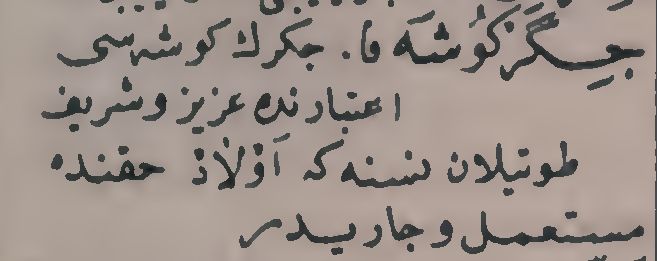 جَگِرْگُوشَه فا. جكرك كوشه سی
اعتبارنده عزيز و شريف
طوتيلان نسنه كه اَوْلَادْ حقنده
مستعمل و جاريدر